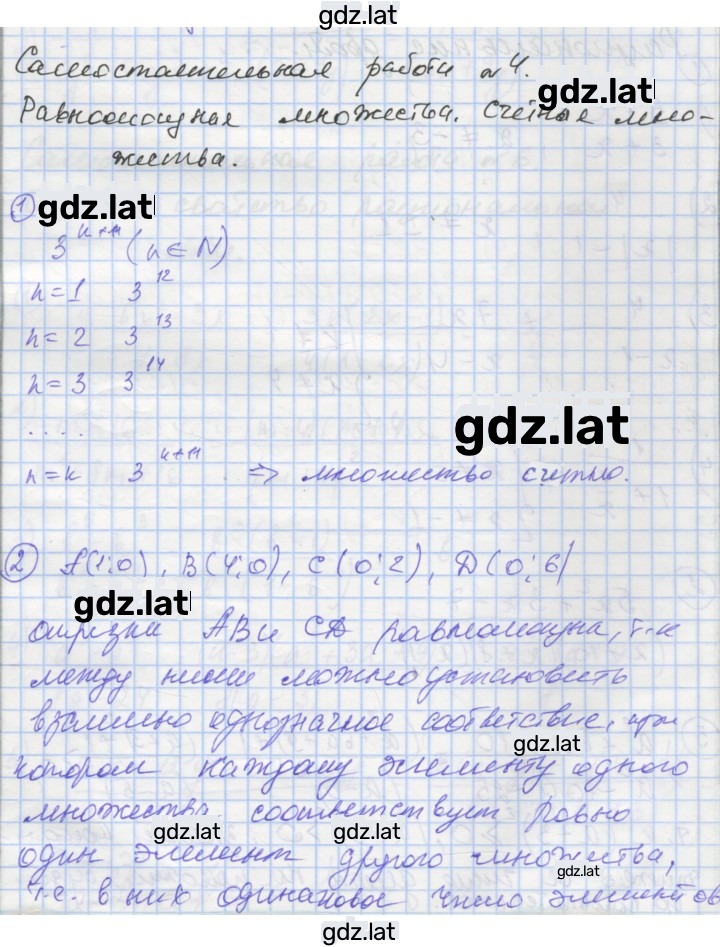 gdz.lat
Самостоятельная работа №4.
gdz.lat
Равномощные множества. Счетные мно-
жества.
① gdz.lat
3^{n+11} (n∈N)
n=1 3^{12}
n=2 3^{13}
n=3 3^{14}
gdz.lat
....
n=k 3^{k+11} ⇒ множество счетно.
② A(1;0), B(4;0), C(0;2), D(0;6)
gdz.lat
отрезки AB и CD равномощны, т.к
между ними можно установить
взаимно однозначное соответствие, при
gdz.lat
котором каждому элементу одного
множества соответствует ровно
gdz.lat
один элемент другого множества,
gdz.lat
т.е. в них одинаковое число элементов
gdz.lat